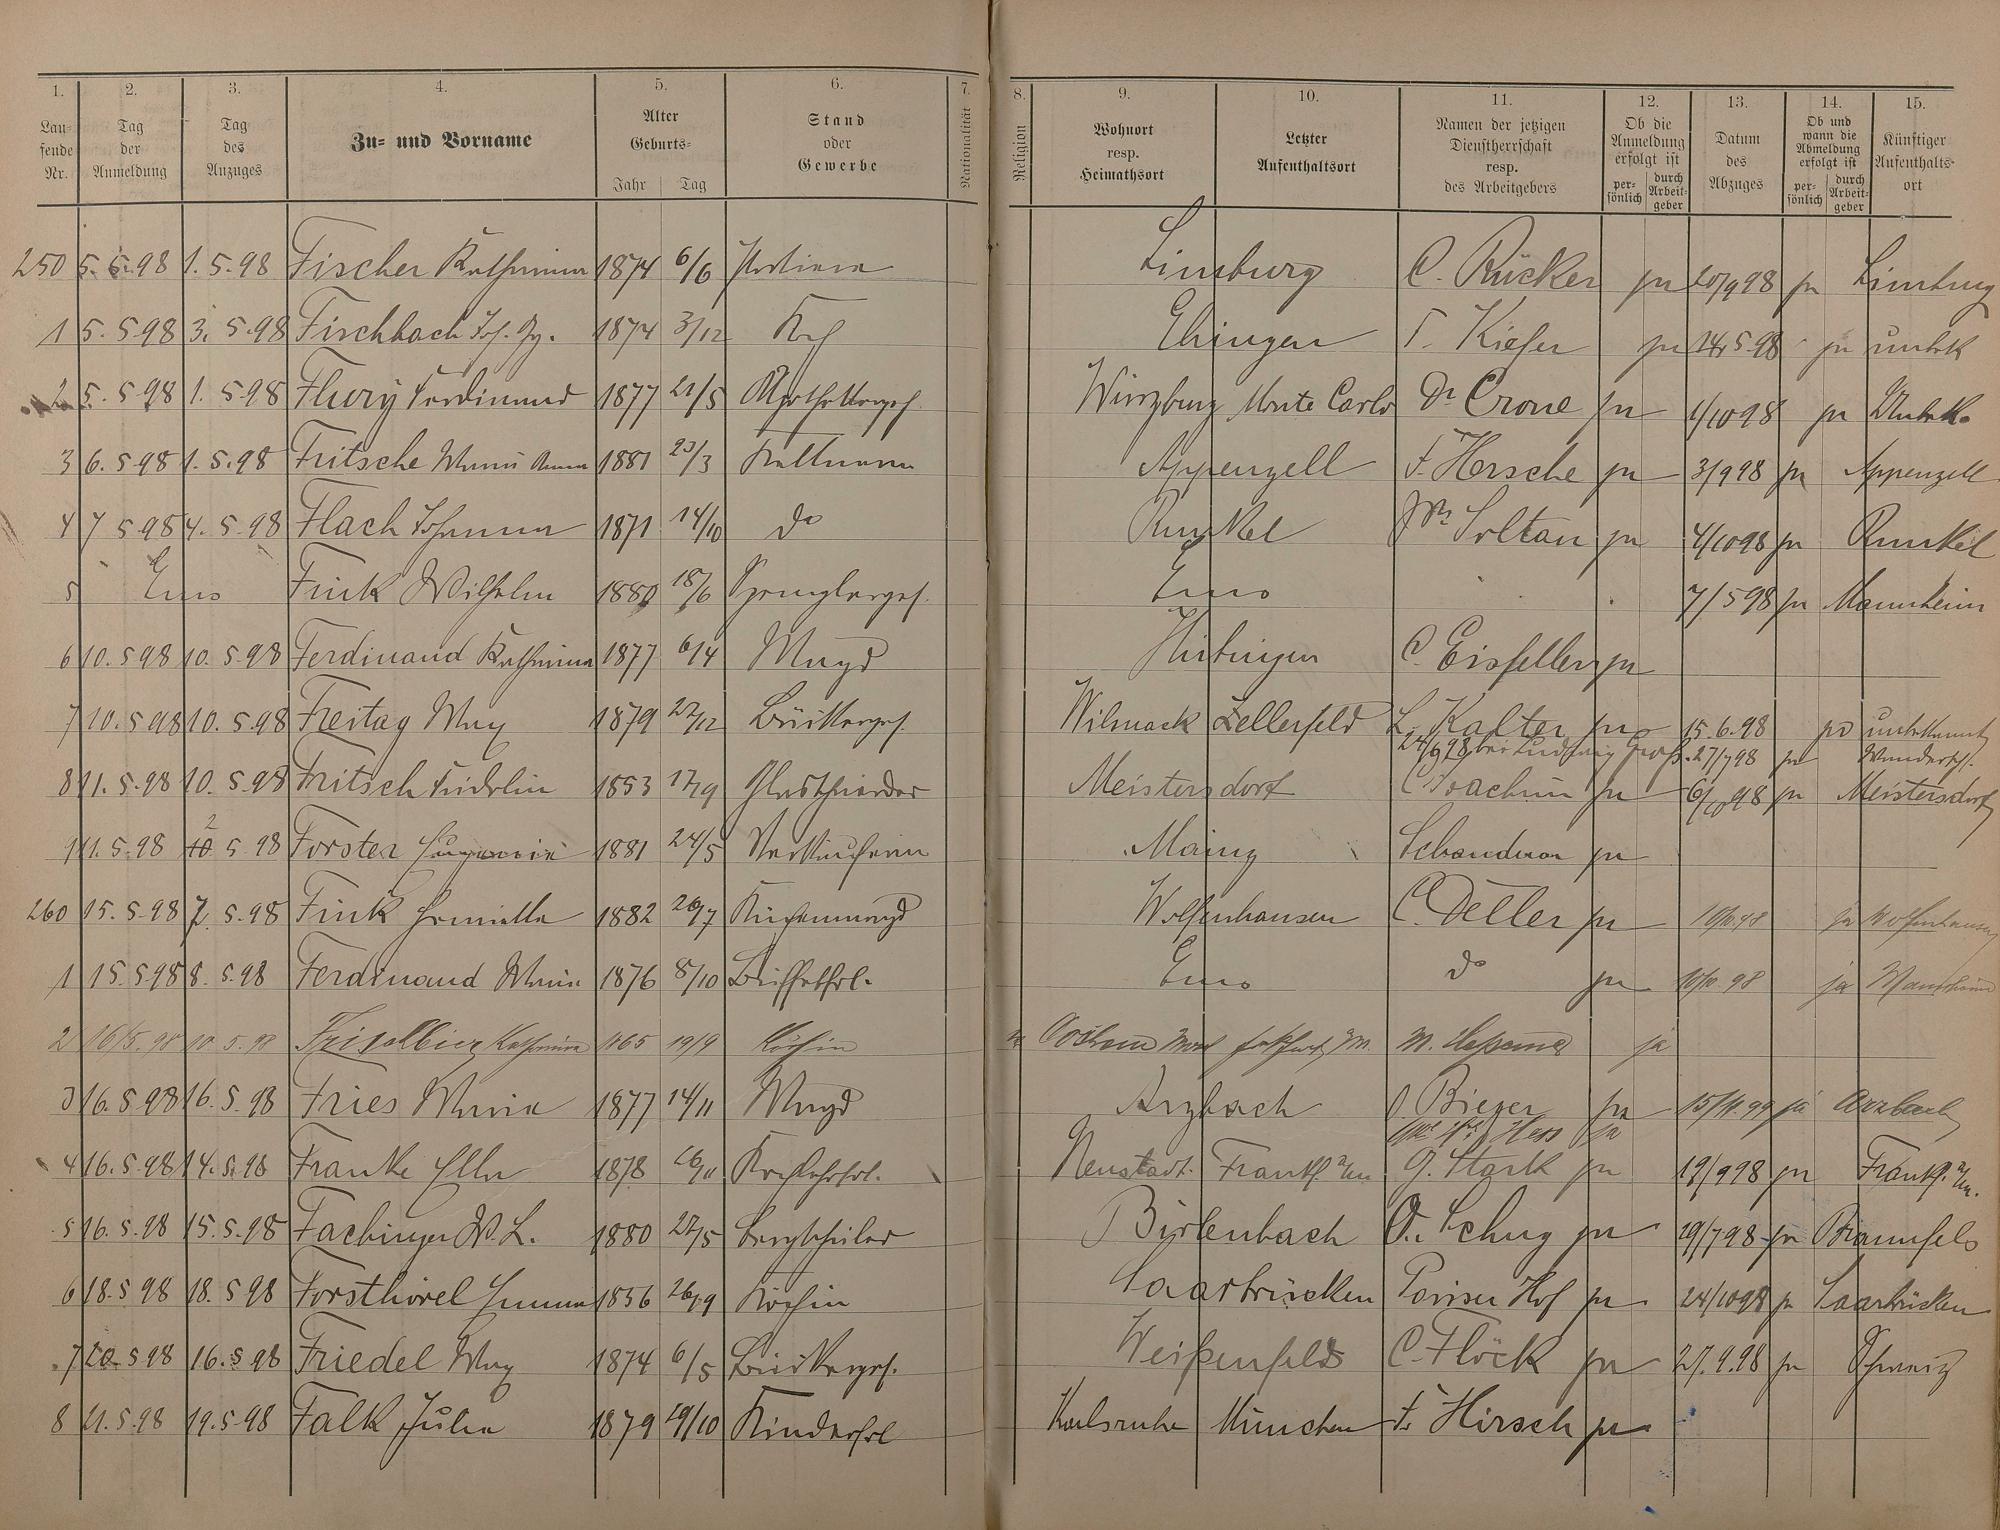 1. 2. 3. 4. 5. 6. 7. 8. 9. 10. 11. 12. 13. 14. 15.
Laufende Nr.
Tag der Anmeldung
Tag des Anzuges
Zu- und Vorname
Alter
Geburts-
Jahr Tag
Stand oder Gewerbe
Nationalität
Religion
Wohnort resp. Heimathsort
Letzter Aufenthaltsort
Namen der jetzigen Dienstherrschaft resp. des Arbeitgebers
Ob die Anmeldung erfolgt ist
persönlich durch Arbeitgeber
Datum des Abzuges
Ob und wann die Abmeldung erfolgt ist
persönlich durch Arbeitgeber
Künftiger Aufenthalts-ort
250 5. 5. 98 1. 5. 98 Fischer Katharina 1874 6/6 Limburg C. Rücker ja 20/9 98 ja Limburg
1 5. 5 98 3. 5. 98 Fischbach Jos. 1874 3/12 Koch Ehingen Kiefer ja 14. 5 98 ja unbek
2 5. 5 98 1. 5 98 Flury Ferdinand 1877 21/5 Würzburg Monte Carlo Dr Crone ja 1/10 98 ja Unbek.
3 6. 5 98 1. 5. 98 Fritsche Maria Anna 1881 23/3 Kellnerin Appenzell F. Hersche ja 3/9 98 ja Appenzell
4 7 5. 98 4. 5. 98 Flach Johanna 1871 14/10 do Runkel Soltau ja 4/10 98 ja Runkel
5 Ems Fink Wilhelm 1880 18/6 Spenglerges. Ems 7/5 98 ja Mannheim
6 10. 5 98 10. 5. 98 Ferdinand Katharina 1877 6/4 Magd C. Eisfeller ja
7 10. 5 98 10. 5. 98 Freitag Max 1879 27/12 Bäckerges. Wilmack Zellerfeld L. Kalter ja 15. 6. 98 ja unbekannt
24/6 98 bei Ludwig Groß. 27/7 98 ja Wanderschl.
8 11. 5. 98 10. 5. 98 Fritsch Fridolin 1853 17/9 Glasschneider Meistersdorf Joachim ja 6/10 98 ja Meistersdorf
9 11. 5. 98 10 2 5 98 Forster 1881 24/5 Verkäuferin Mainz Schandua ja
260 15. 5. 98 7. 5. 98 Fink Hermine 1882 26/7 Küchenmagd Wolfenhausen C. Deller ja 10/10. 98 ja Wolfenhausen
1 15. 5 98 8. 5. 98 Ferdinand Maria 1876 8/10 Buffetfrl. Ems do ja 10/10 98 ja Mannheim
2 16/5. 98 10. 5. 98 Katharina 1865 19/9 Köchin ja
3 16. 5 98 16. 5. 98 Fries Maria 1877 14/11 Magd Arzbach Bieger ja 15/11. 99 ja Arzbach
Hess ja
4 16. 5. 98 14. 5. 98 Franke Ella 1878 26/11 Kochlehrfrl. Neustadt Frankf. a/m. G. Stark ja 19/9 98 ja Frankf. a/m.
5 16. 5. 98 15. 5. 98 Fachinger W. L. 1880 27/5 Bergschüler Birlenbach O. Schug ja 29/7 98 ja Braunfels
6 18. 5 98 18. 5 98 Forsthövel Emma 1856 26/9 Köchin Saarbrücken Pariser Hof ja 24/10 98 ja Saarbrücken
7 20. 5 98 16. 5 98 Friedel Max 1874 6/5 Bäckerges. Weißenfels C. Flöck ja 27. 9. 98 ja Schweiz
8 21. 5. 98 19. 5. 98 Falk Julia 1879 29/10 Kinderfrl Karlsruhe München Fr Hirsch ja